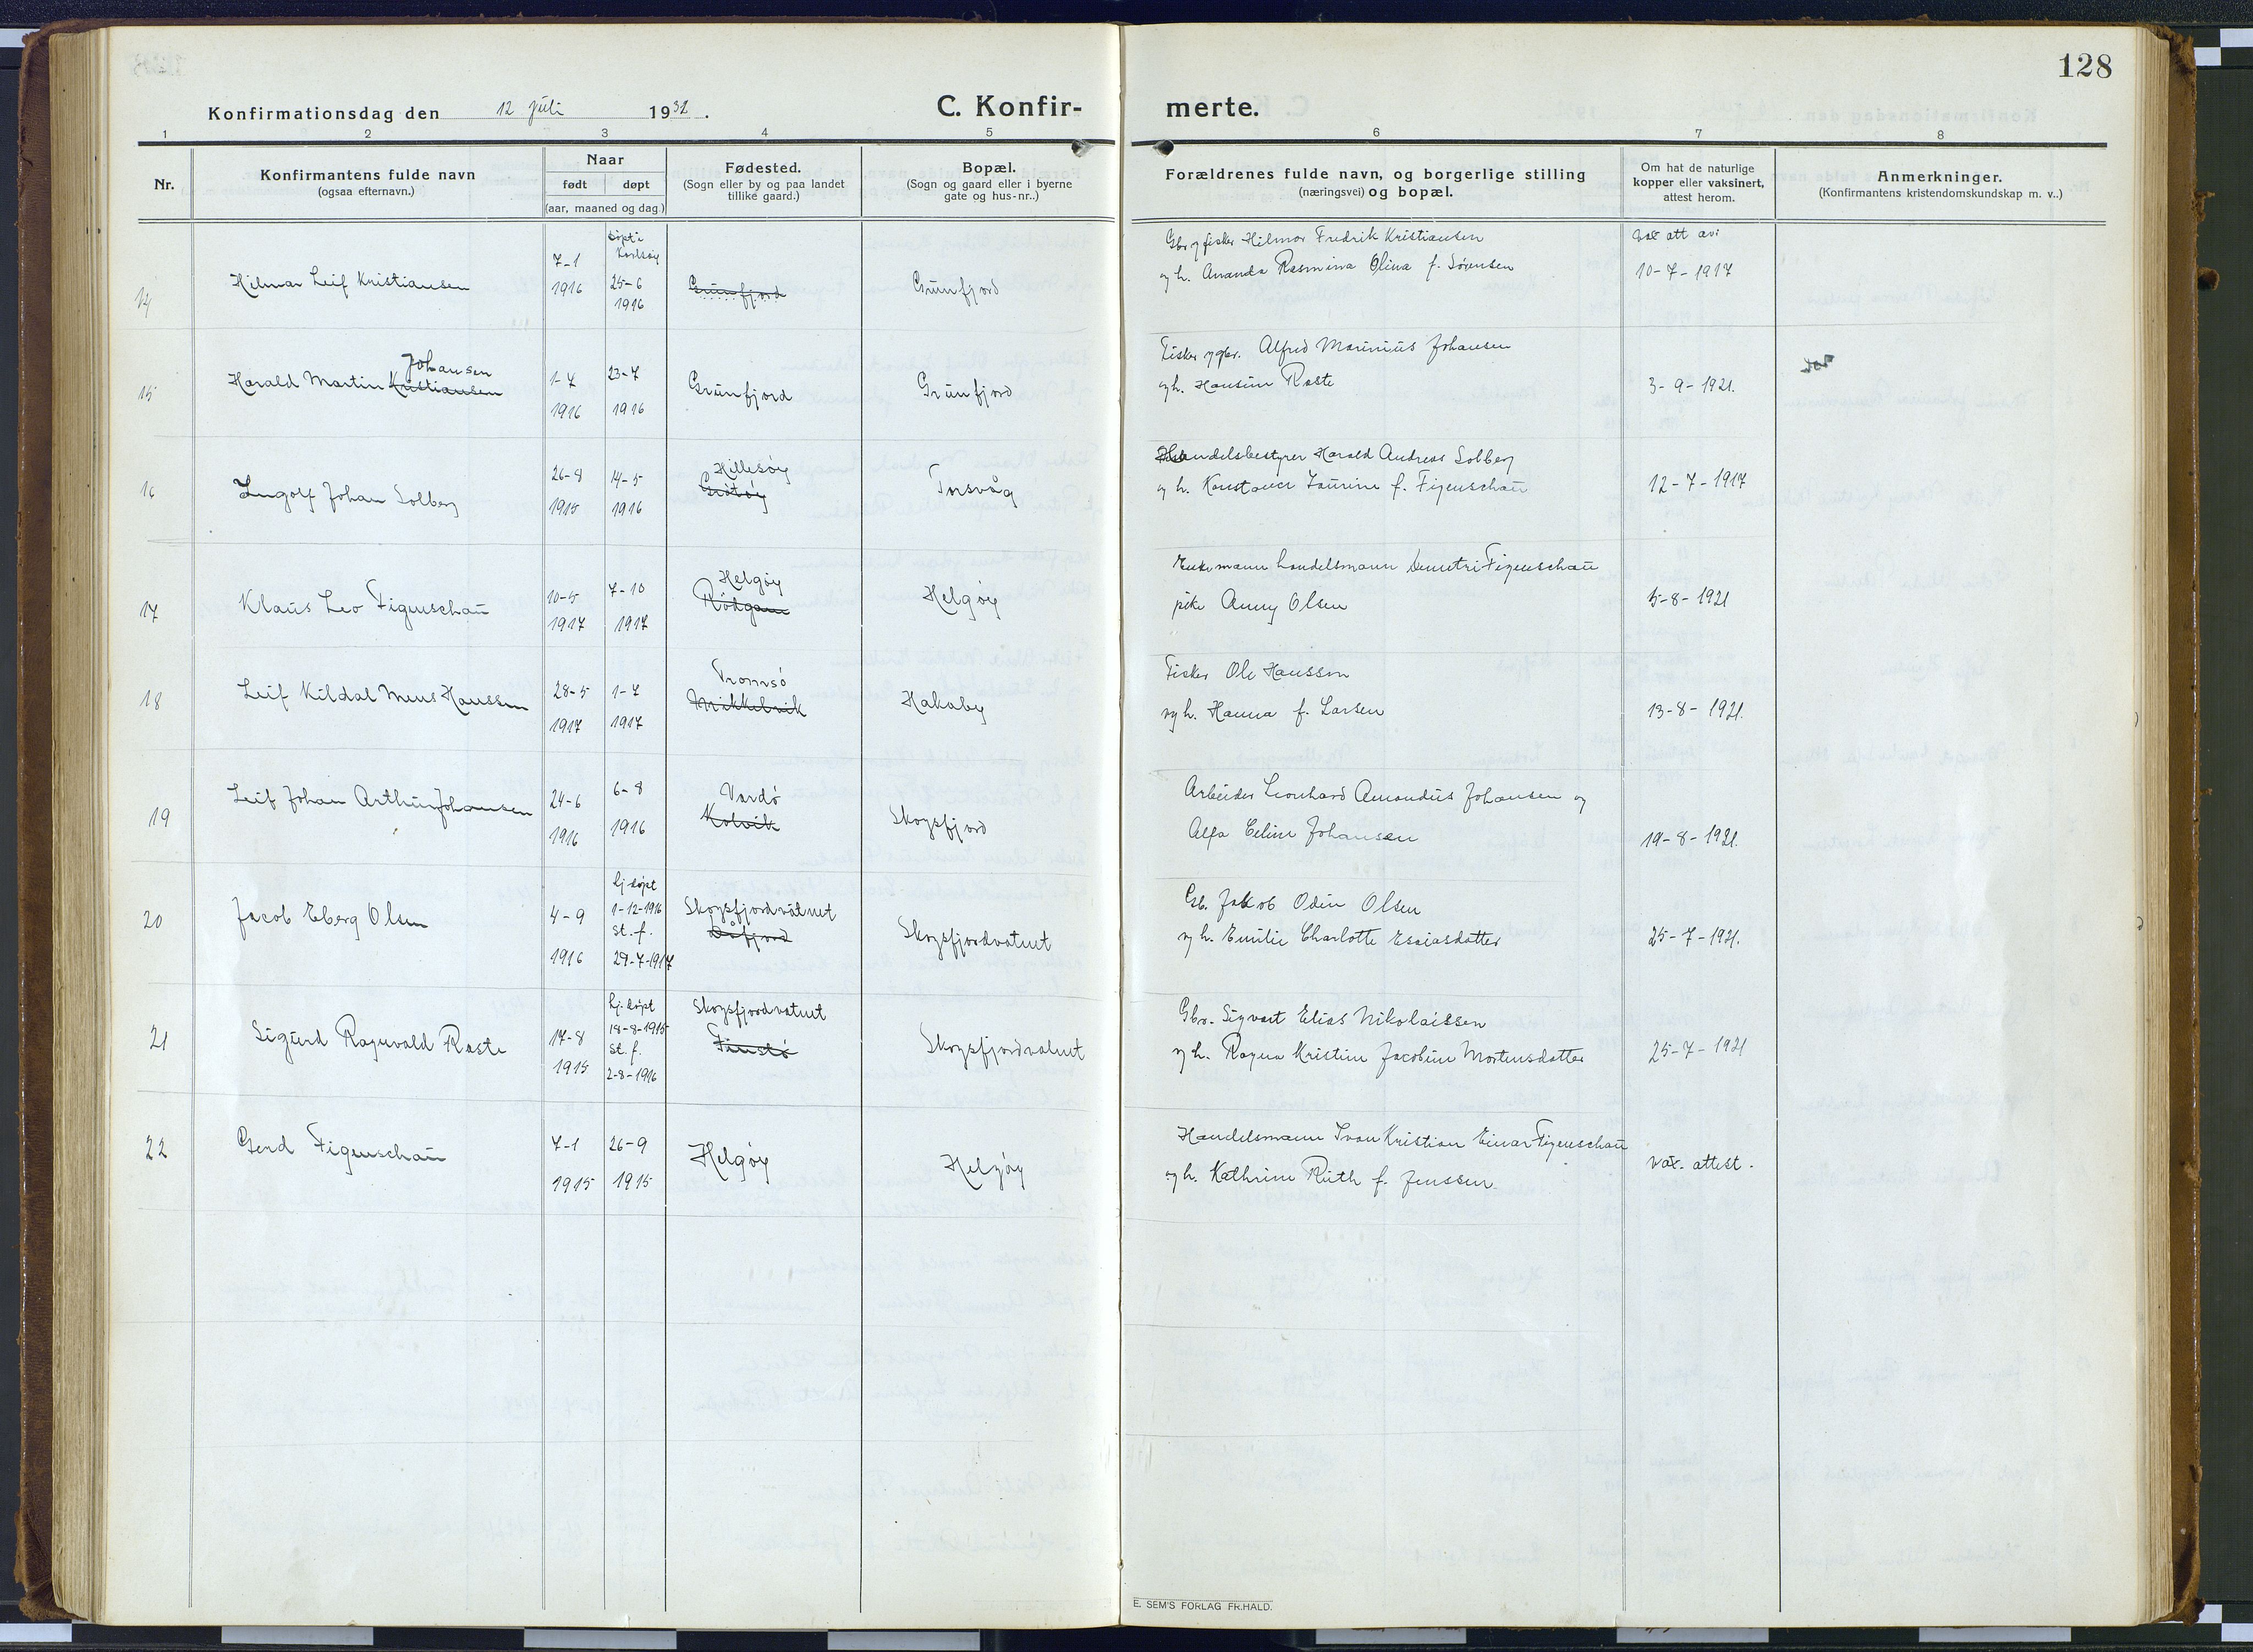 128
Konfirmationsdag den 12 juli 1931.
C. Konfir-
merte.
1 2 3 4 5 6 7 8
Nr.
Konfirmantens fulde navn
(ogsaa efternavn.)
Naar
født døpt
(aar, maaned og dag.)
Fødested.
(Sogn eller by og paa landet
tillike gaard.)
Bopæl.
(Sogn og gaard eller i byerne
gate og hus-nr..)
Forældrenes fulde navn, og borgerlige stilling
(næringsvei) og bopæl.
Om hat de naturlige
kopper eller vaksinert,
attest herom.
Anmerkninger.
(Konfirmantens kristendomskundskap m. v..)
14
Hilmar Leif Kristiansen
7-1
1916
døpt i
Karlsøy
25-6
1916
Grunfjord
Grunfjord
Gbr og fisker Hilmar Fredrik Kristiansen
og h. Ananda Rasmina Olina f. Sørensen
vax att av:
10-7-1917
15
Johansen
Harald Martin Kristiansen
1-7
1916
23-7
1916
Grunfjord
Grunfjord
Fisker og gbr. Alfred Marinius Johansen
og h. Hansine Raste
3-9-1921.
16
Ingolf Johan Solberg
26-8
1915
14-5
1916
Hillesøy
Grøtøy
Torsvåg
Handelsbestyrer Harald Andreas Solberg
og h. Konstance Laurine f. Figenschau
12-7-1917
17
Klaus Leo Figenschau
10-5
1917
7-10
1917
Helgøy
Helgøy
Enkemann handelsmann Demetri Figenschau
pike Anny Olsen
5-8-1921
18
Leif Kildal Meus Hanssen
28-5
1917
1-7
1917
Tromsø
Mikkelvik
Hakøby
Fisker Ole Hanssen
og h. Hanna f. Larsen
13-8-1921.
19
Leif Johan Arthur Johansen
24-6
1916
6-8
1916
Vardø
Kolvik
Skogsfjord
Arbeider Leonhard Amandus Johansen og
Alfa Celine Johansen
19-8-1921.
20
Jacob Eberg Olsen
4-9
1916
hj døpt
1-12-1916
st. f.
29-7-1917
Skogsfjordvatnet
Dåfjord
Skogsfjordvatnet
Gb. Jakob Odin Olsen
og h. Emilie Charlotte Esaiasdatter
25-7-1921.
21
Sigurd Ragnvald Raste
17-8
1915
hj. døpt
18-8-1915
st. f.
2-8-1916
Skogsfjordvatnet
Finstø
Skogsfjordvatnet
Gbr. Sigvart Elias Nikolaissen
og h. Ragna Kristine Jacobine Mortensdatter
25-7-1921
22
Gerd Figenschau
7-1
1915
26-9
1915
Helgøy
Helgøy
Handelsmann Ivan Kristian Einar Figenschau
og h. Kathrine Ruth f. Jenssen
vax. attest.
E. SEM'S FORLAG FR.HALD.